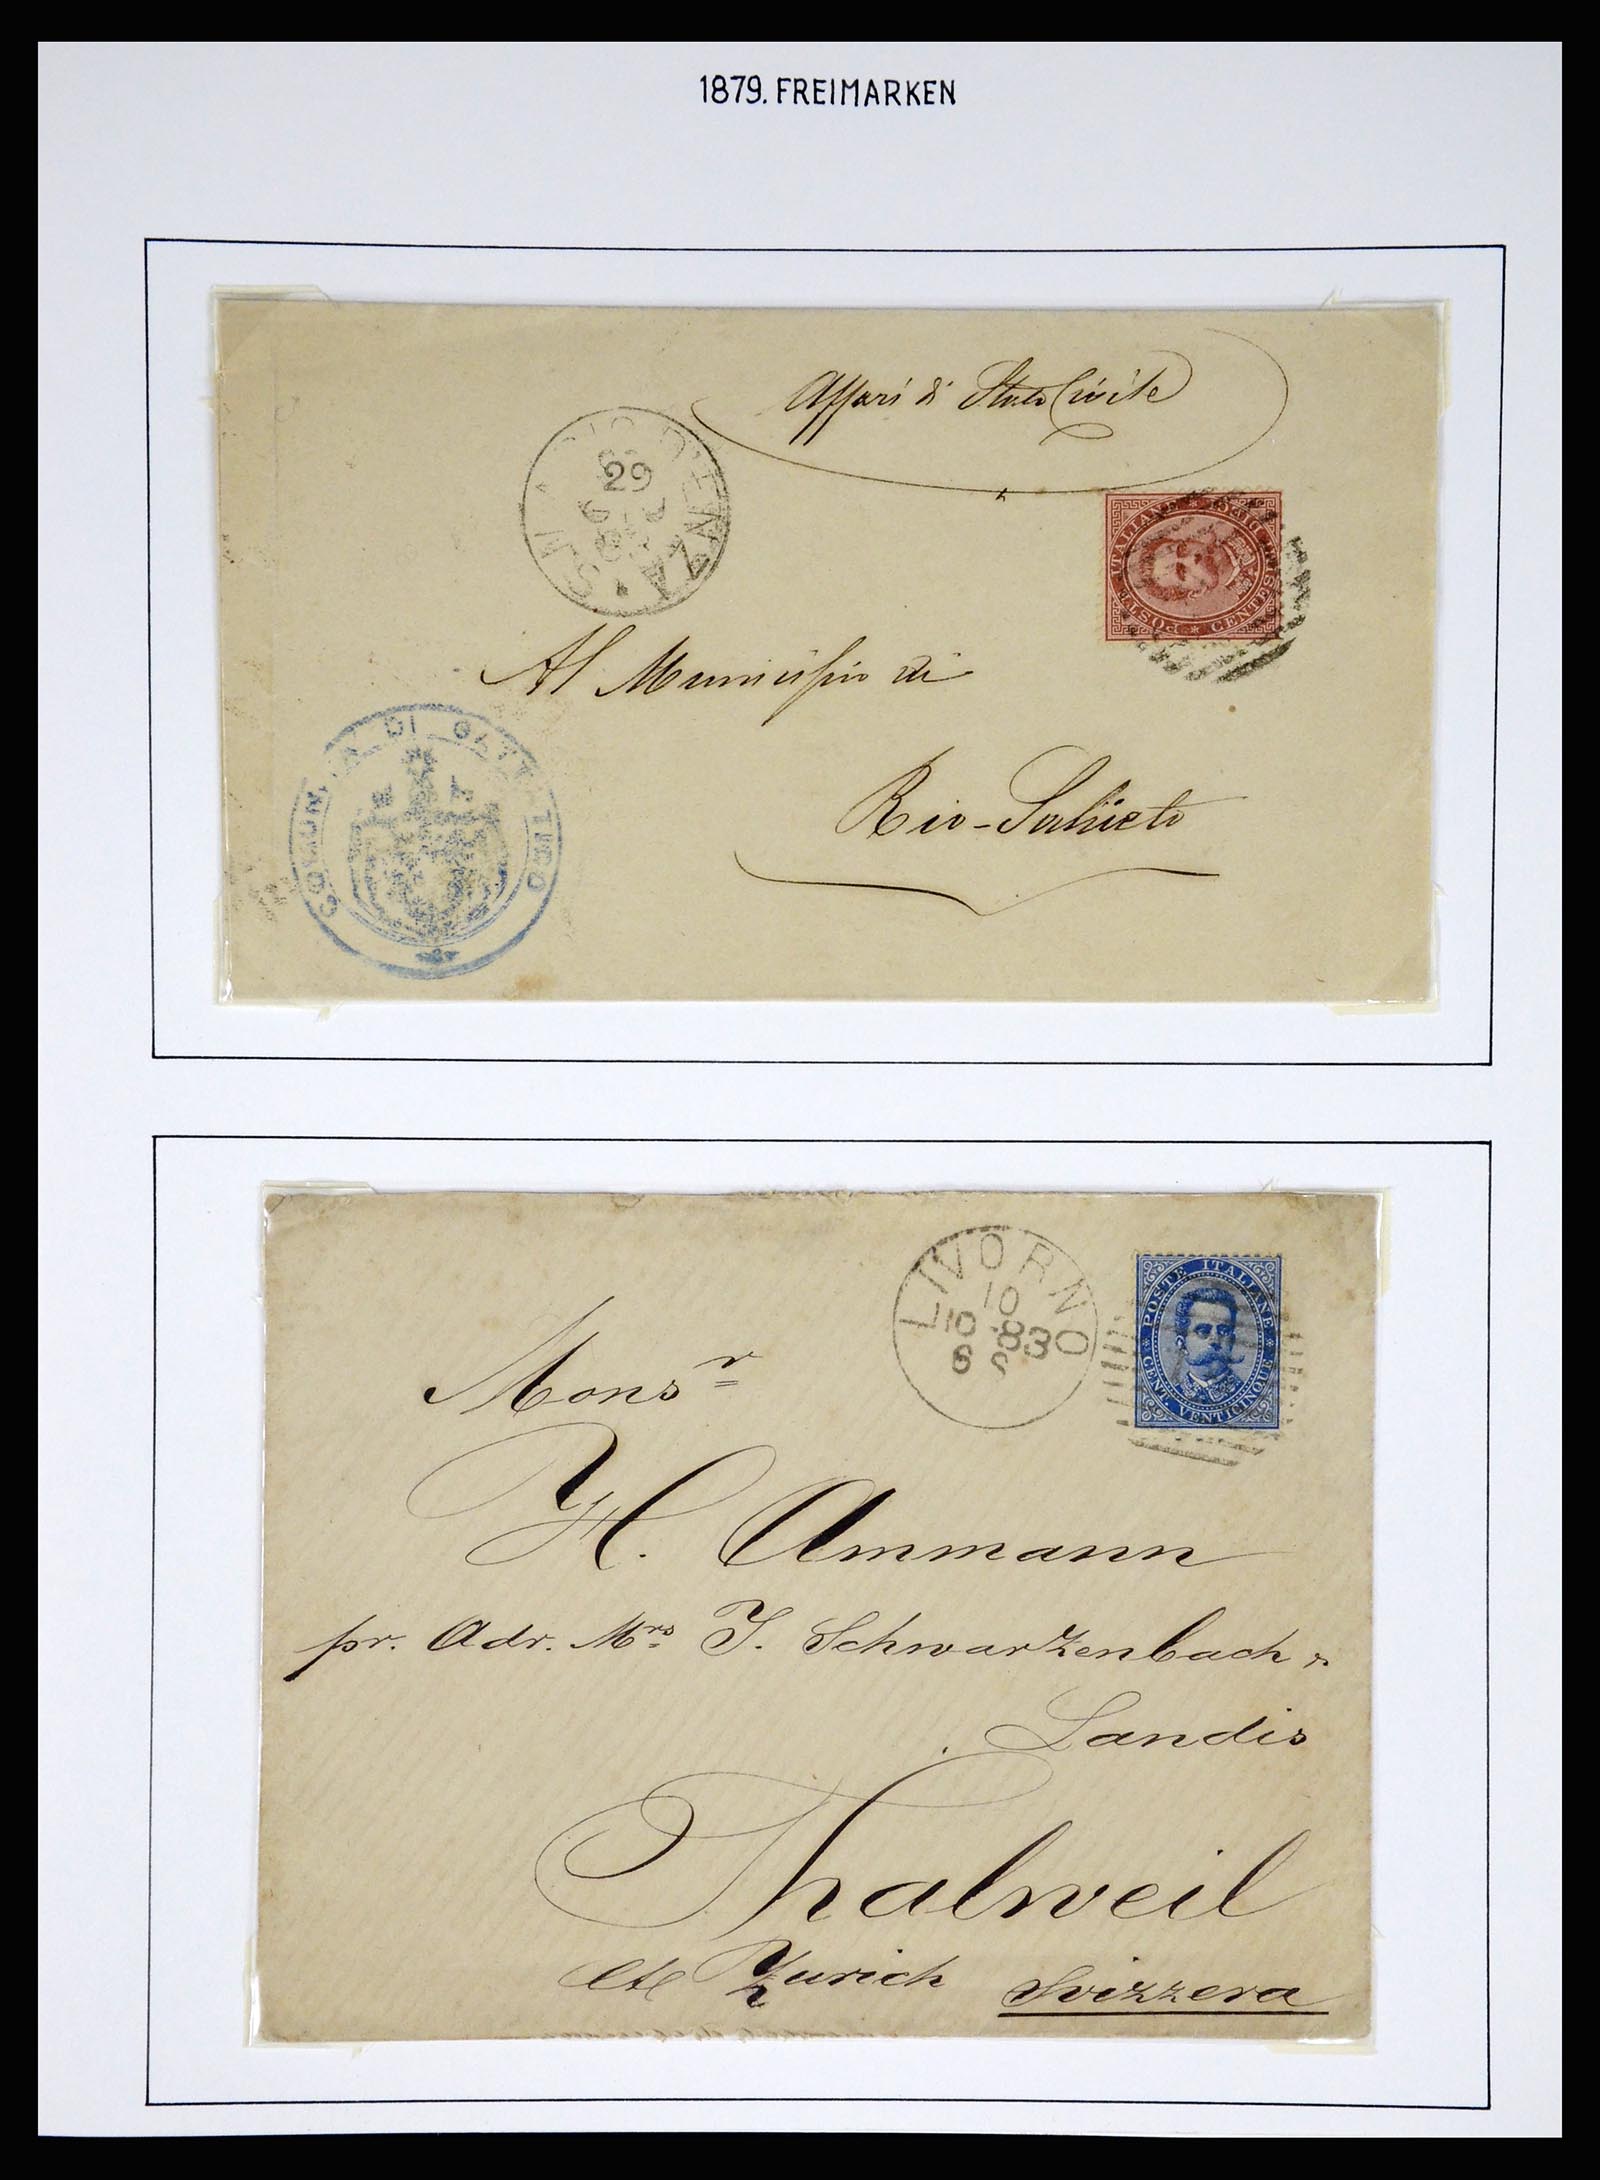 1879. FREIMARKEN
Affari di Stato Civile
D'ENZA
29
POSTE ITALIANE
CENTESIMI DIECI
Al Municipio di
COMUNITÀ DI GATTATICO
Rio-Saliceto
LIVORNO
10
10 83
6 S
POSTE ITALIANE
CENT. VENTICINQUE
Monsr
H. Ammann
pr. Adr. Mrs J. Schwarzenbach
Landis
Thalweil
Zurich Svizzera